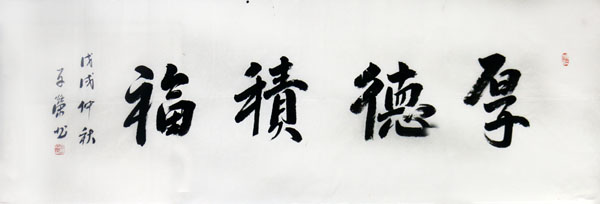 厚德積福
戊戌仲秋